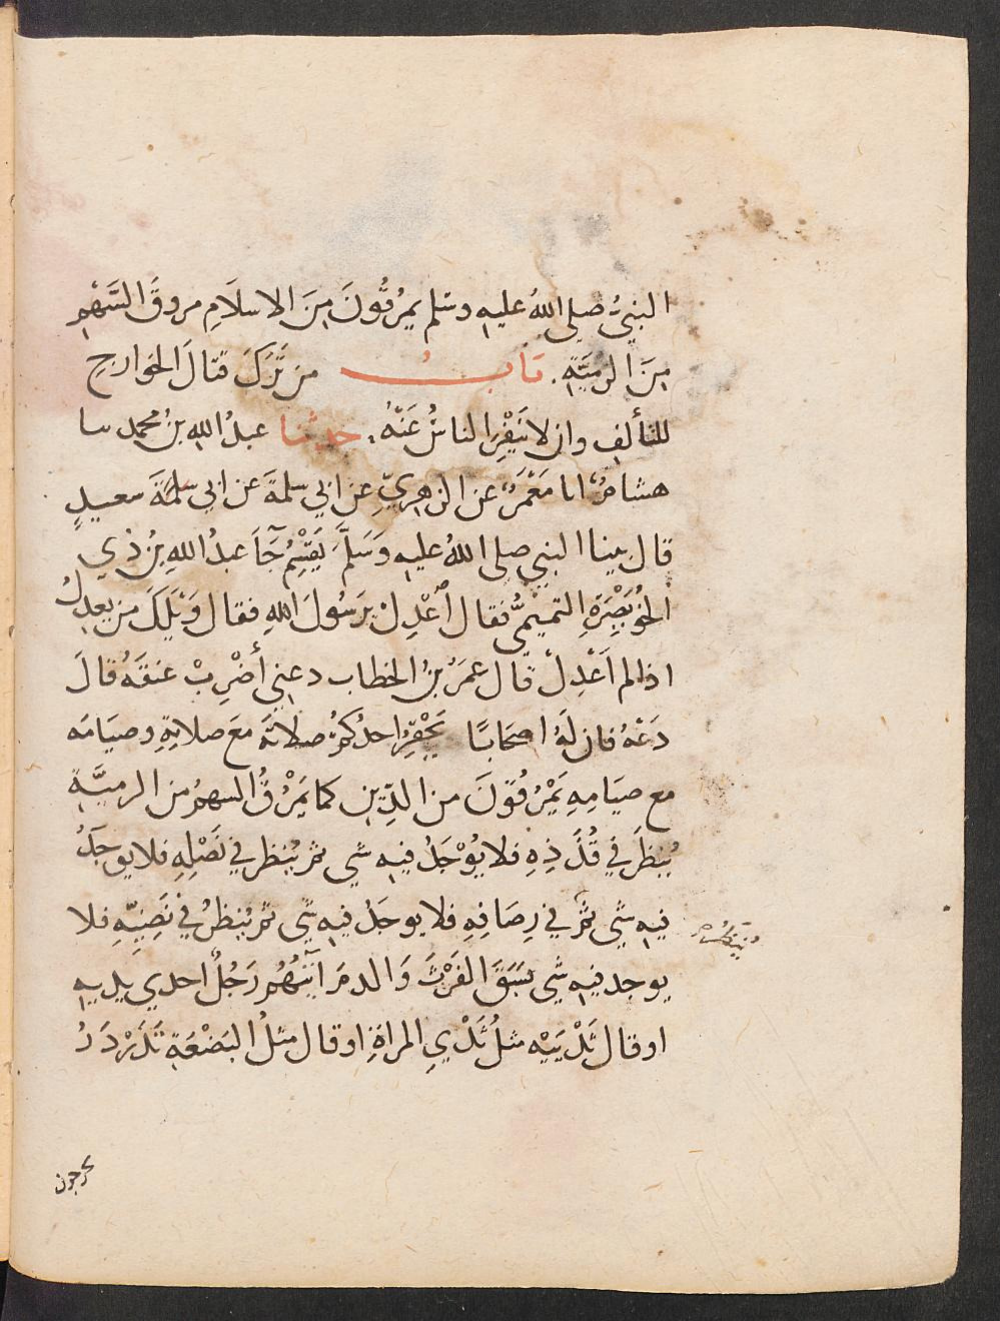 النبيُّ صلى اللهُ عليه وسلم يمرُقُونَ مِنَ الاسلَامِ مروقَ السَّهْمِ
مِنَ الرميَّةِ. بَابُ من تَرَكَ قتالَ الخوارجِ
للتألفِ وان لا يَنْفِرَ الناسُ عَنْهُ. حدثنا عبدُ الله بنُ محمد سا
هشامٌ انا مَعْمَرٌ عن الزهريِّ عن ابي سلمةَ عن ابي سلمةَ سعيدٍ
قال بينا النبي صلى اللهُ عليه وَسَلَّمَ يَقْسِمُ جَآءَ عبدُ اللهِ بنُ ذي
الخُوَيْصِرَةِ التميميُّ فقال اعْدِلْ يرَسُولَ اللهِ فقال وَيْلَكَ من يعدِلُ
اذا لم اَعْدِلْ قال عمَرُ بنُ الخطاب دعني أضْرِبْ عنقَهُ قالَ
دَعْهُ فان لَهُ اصحَابًا يَحْقِرُ احدُكُمْ صلاتَهُ مَعَ صلاتِهِ وصيَامَه
مع صيَامِهِ يَمْرُقُونَ من الدِّينِ كما يَمْرُقُ السهمُ من الرميَّةِ
يُنظَرُ في قُذَذِهِ فلا يُوْجَدُ فيه شي ثم يُنظر في نَصْلِهِ فلا يوجَدُ
فيه شي ثم في رِصَافِهِ فلا يوجَدُ فيه شي ثم يُنظرُ في نَضِيِّهِ فلا
يوجد فيه شي سَبَقَ الفَرْثَ وَالدمَ آيَتُهُم رَجُلٌ احدي يديه
او قال ثَدْيَيْه مثلُ ثَدْيِ المراةِ او قال مثلُ البَضْعَةِ تَدَرْدَرُ
يخرجون